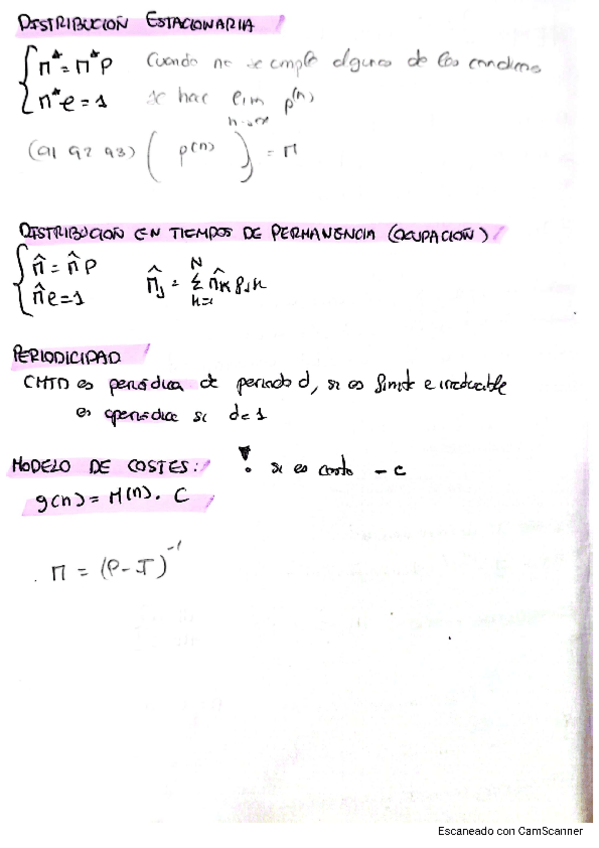 DISTRIBUCIÓN ESTACIONARIA
π* = π* P Cuando no se cumple alguna de las condiciones
π* e = 1 se hace lim p(n)
n→∞
(a1 a2 a3) ( p(n) ) = π
DISTRIBUCIÓN EN TIEMPOS DE PERMANENCIA (OCUPACIÓN)
π̂ = π̂ P π̂j = N Σ k=1 π̂k
π̂ e = 1
PERIODICIDAD
CMTD es periódica de periodo d, si es finita e irreducible
es aperiódica si d=1
MODELO DE COSTES: ! si es costo - c
g(n) = M(n). C
π = (P - I)-1
Escaneado con CamScanner